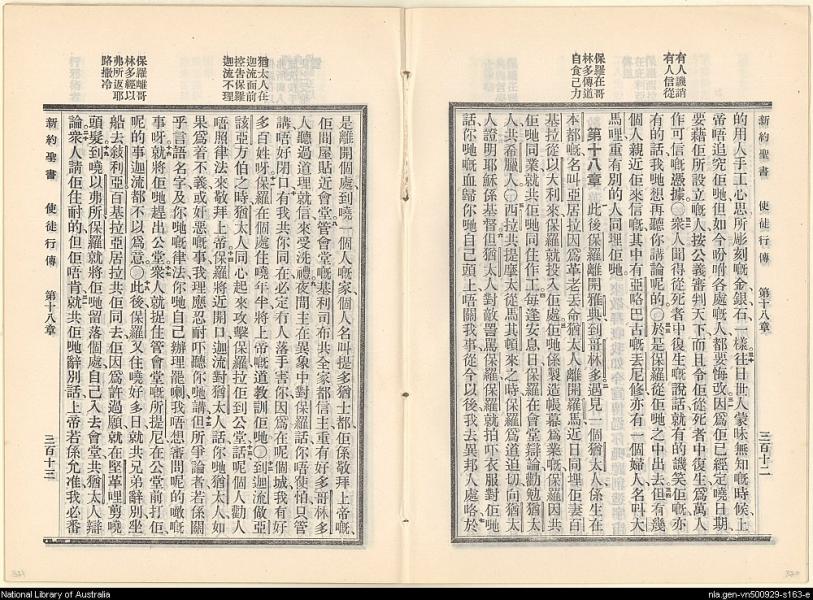 有人譏誚
有人信從
保羅在哥
林多傳道
自食己力
新約聖書 使徒行傳 第十八章 三百十二
的用人手工心思所彫刻嘅金銀石一樣往日世人蒙昧無知嘅時候上
帝唔追究佢哋但如今吩咐各處嘅人都要悔改因爲佢已經定曉日期
要藉佢所設立嘅人按公義審判天下而且令佢從死者中復生爲萬人
作可信嘅憑據〇衆人聞得從死者中復生嘅說話就有的譏笑佢嘅亦
有的話我哋想再聽你講論呢的〇於是保羅從佢哋之中出去但有幾
個人親近佢來信嘅其中有亞略巴古嘅丟尼修亦有一個婦人名叫大
馬哩重有別的人同埋佢哋
第十八章 此後保羅離開雅典到哥林多遇見一個猶太人係生在
本都嘅名叫亞居拉因爲革老丟命猶太人離開羅馬近日同埋佢妻百
基拉從以大利來保羅就投入佢處佢哋係製造帳幕爲業嘅保羅因共
佢哋同業就共佢哋同住作工每逢安息日保羅在會堂辯論勸勉猶太
人共希臘人〇西拉共提摩太從馬其頓來之時保羅爲道迫切向猶太
人證明耶穌係基督但猶太人對敵詈罵保羅保羅就拍吓衣服對佢哋
話你哋嘅血歸你哋自己頭上唔關我事從今以後我去異邦人處咯於
猶太人在
迦流面前
控吿保羅
迦流不理
保羅離哥
林多經以
弗所返耶
路撒冷
是離開個處到曉一個人嘅家個人名叫提多猶士都佢係敬拜上帝嘅
佢間屋貼近會堂管會堂嘅基利司布共全家都信主重有好多哥林多
人聽過道理就信來受洗禮夜間主在異象中對保羅話你唔使怕只管
講唔好閉口有我共你同在必定有人落手害你因爲在呢個城我有好
多百姓呀保羅在個處住曉年半將上帝嘅道教訓佢哋〇到迦流做亞
該亞方伯之時猶太人同心起來攻擊保羅拉佢到公堂話呢個人勸人
唔照律法來敬拜上帝保羅將近開口迦流對猶太人話你哋猶太人如
果爲着不義或奸惡嘅事我理應忍耐吓聽你哋講但所爭論者若係關
乎言語名字及你哋嘅律法你哋自己辦理罷喇我唔想審問呢的噉嘅
事呀就將佢哋趕出公堂衆人就捉住管會堂嘅所提尼在公堂前打佢
呢的事迦流都不以爲意〇此後保羅又住曉好多日就共兄弟辭別坐
船去敍利亞百基拉亞居拉共佢同去佢因爲許過願就在堅革哩剪曉
頭髮到曉以弗所保羅就將佢哋留落個處自己入去會堂共猶太人辯
論衆人請佢住耐的但佢唔肯就共佢哋辭別話上帝若係允准我必番
新約聖書 使徒行傳 第十八章 三百十三
National Library of Australia
nla.gen-vn500929-s163-e